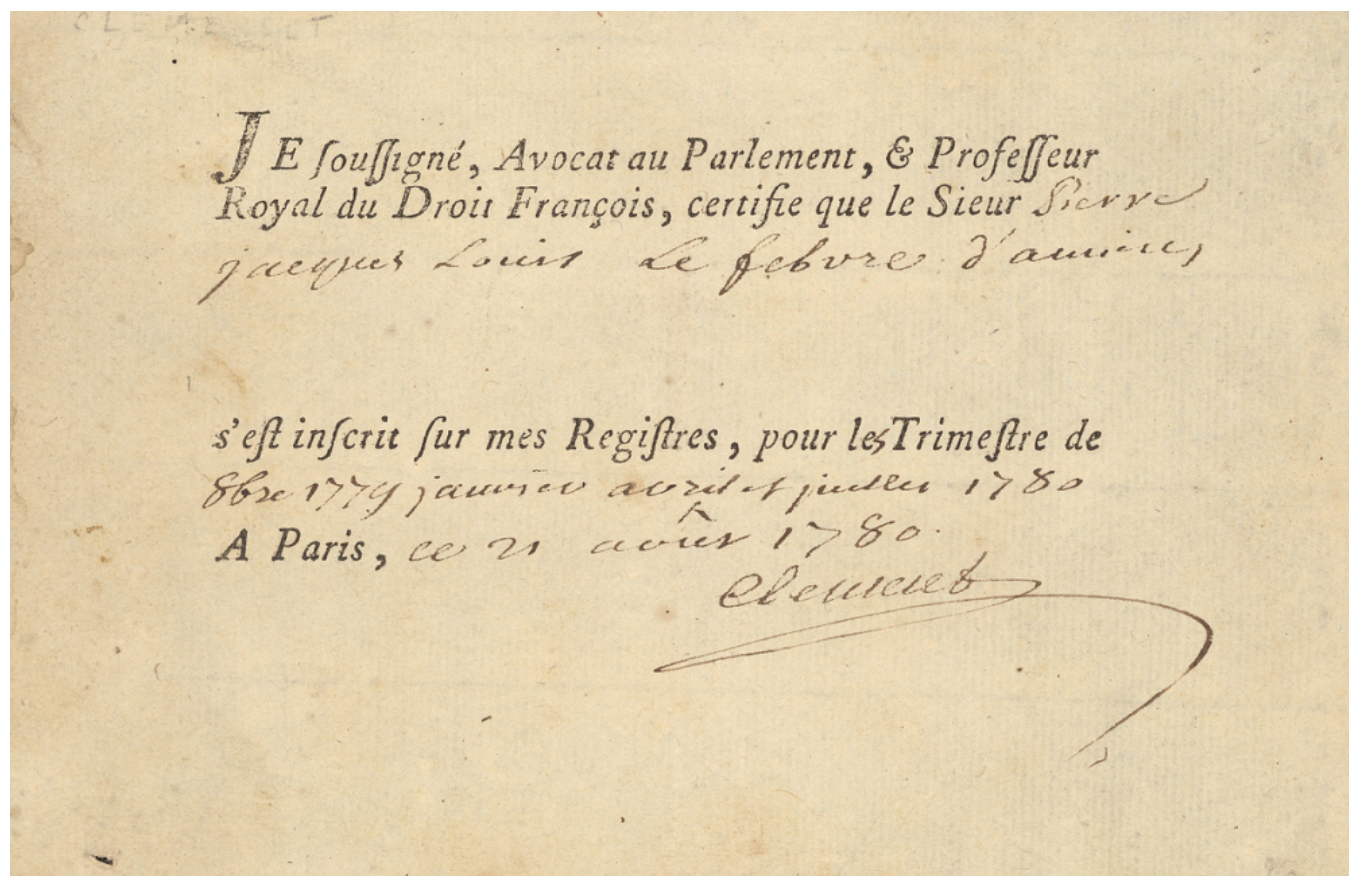 CLEMENCET
JE ſouſſigné, Avocat au Parlement, & Profeſſeur
Royal du Droit François, certifie que le Sieur Pierre
jacques Louis Le febvre d'amiens
s'eſt inſcrit ſur mes Regiſtres, pour les Trimeſtre de
8bre 1779 janvier avril et juillet 1780
A Paris, ce 21 août 1780.